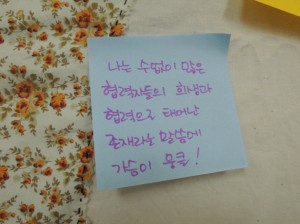 나는 수없이 많은
협력자들의 희생과
협력으로 태어난
존재라는 말씀에
가슴이 뭉클!